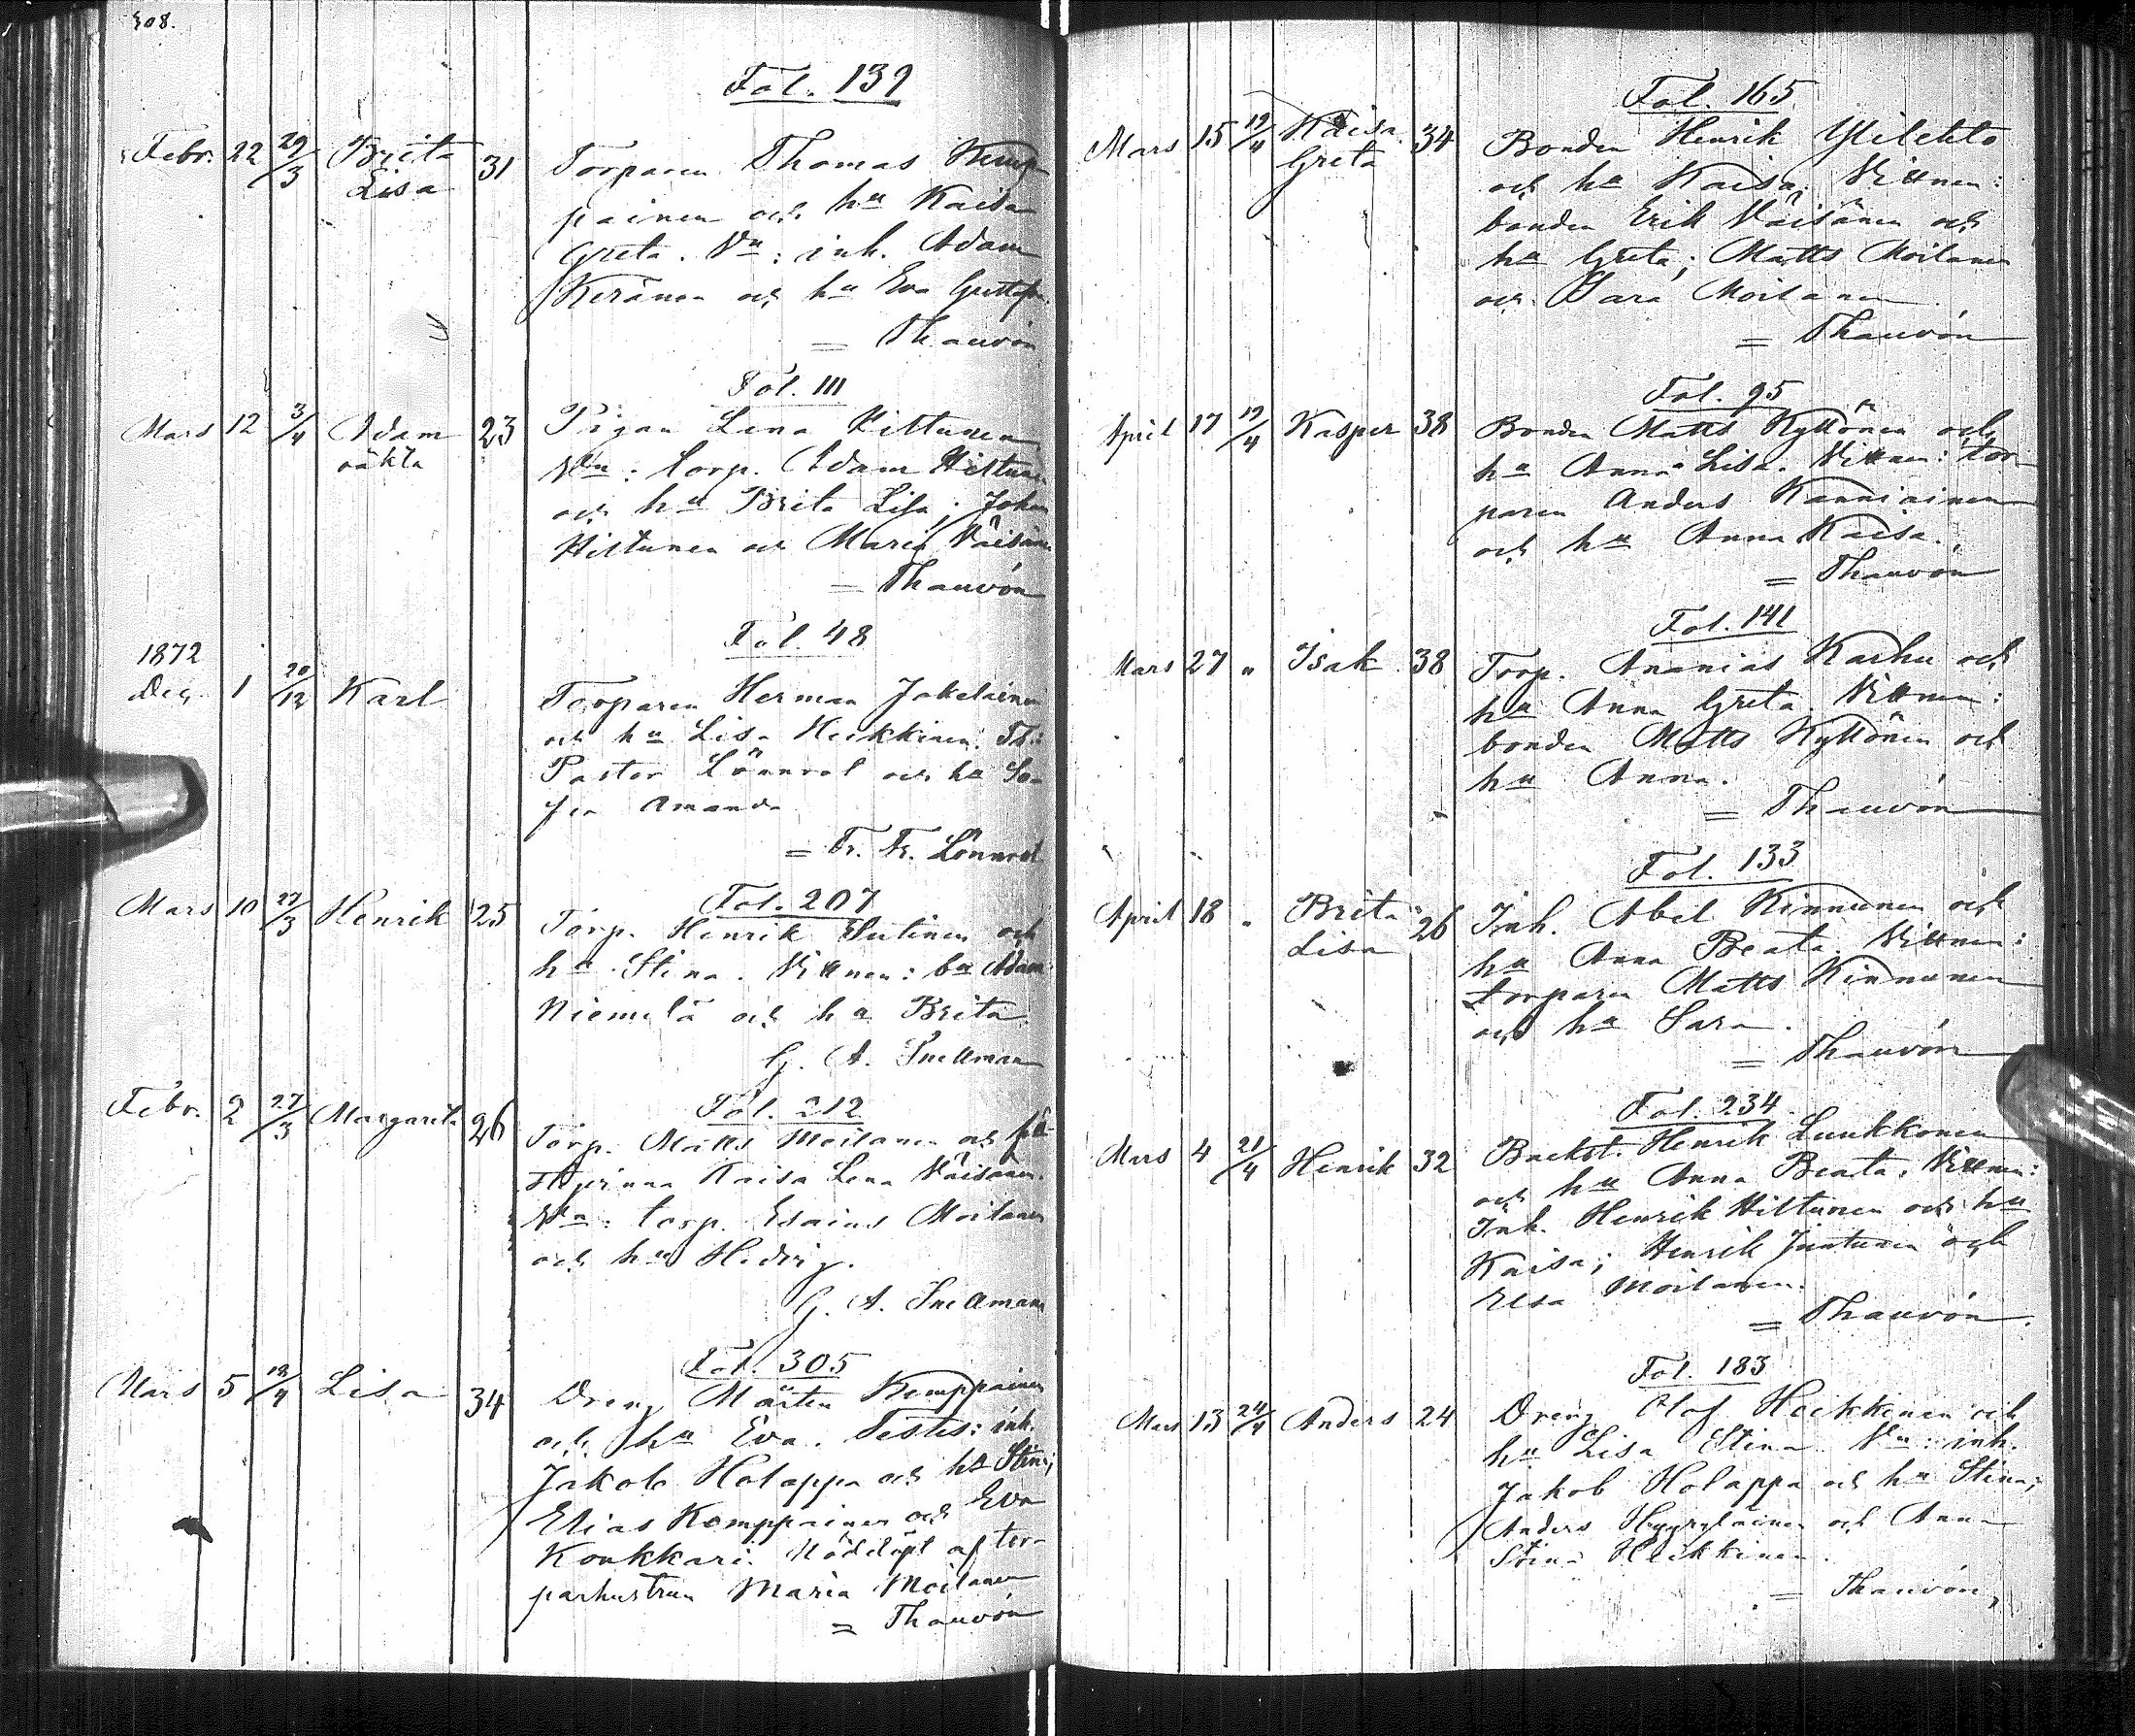 308.
Fol. 139
Febr. 22 29/3 Brita Lisa 31 Torparen Thomas Kemp-
painen och hu Kaisa
Greta. Vn: inh. Adam
Keränen och hu Eva
= Thauvón
Fol. 111
Mars 12 3/4 Adam oäkta 23 Pigan Lena Hiltunen
Vn: torp. Adam Hiltunen
och hu Brita Lisa; Johan
Hiltunen och Maria Väisänen
= Thauvón
Fol. 48
1872
Dec. 1 20/12 Karl Torparen Herman Jokelainen
och hu Lisa Heikkinen. Tt:
Pastor Lönnrot och hu So-
fia Amanda
= Fr. Fr. Lönnrot
Fol. 207
Mars 10 27/3 Henrik 25 Torp. Henrik Sutinen och
hu Stina. Vittnen: bn Adam
Niemelä och hu Brita.
G. A. Snellman
Fol. 212
Febr. 2 27/3 Margareta 26 Torp. Matts Moilanen och fä-
Kaisa Lena Väisänen.
Vn: torp. Esaias Moilanen
och hu Hedvig.
G. A. Snellman
Fol. 305
Mars 5 18/4 Lisa 34 Dreng Mårten Kemppainen
och hu Eva. Testes: inh.
Jakob Holappa och hu Stina;
Elias Kemppainen och Eva
Konkkari. Nöddöpt af tor-
parhustrun Maria Moilanen
= Thauvón
Fol. 165
Mars 15 19/4 Kaisa Greta 34 Bonden Henrik Ylilehto
och hu Kaisa; Vittnen:
bonden Erik Väisänen och
hu Greta; Matts Moilanen
och Sara Moilanen.
= Thauvón
Fol. 95
April 17 19/4 Kasper 38 Bonden Matts Kyllönen och
hu Anna Lisa. Vittnen: tor-
paren Anders Kanniainen
och hu Anna Kaisa.
= Thauvón
Fol. 141
Mars 27 " Isak 38 Torp. Ananias Karhu och
hu Anna Greta. Vittnen:
bonden Matts Kyllönen och
hu Anna.
= Thauvón
Fol. 133
April 18 " Brita Lisa 26 Inh. Abel Kinnunen och
hu Anna Beata. Vittnen:
torparen Matts Kinnunen
och hu Sara.
= Thauvón
Fol. 234
Mars 4 21/4 Henrik 32 Backst. Henrik Luukkonen
och hu Anna Beata. Vittnen:
Inh. Henrik Hiltunen och hu
Kaisa; Henrik Juntunen och
Elsa Moilanen.
= Thauvón.
Fol. 183
Mars 13 24/4 Anders 24 Dreng Olof Heikkinen och
hu Lisa Stina. Vn: inh.
Jakob Holappa och hu Stina;
Anders Hyyryläinen och Anna
Stina Heikkinen.
= Thauvón,